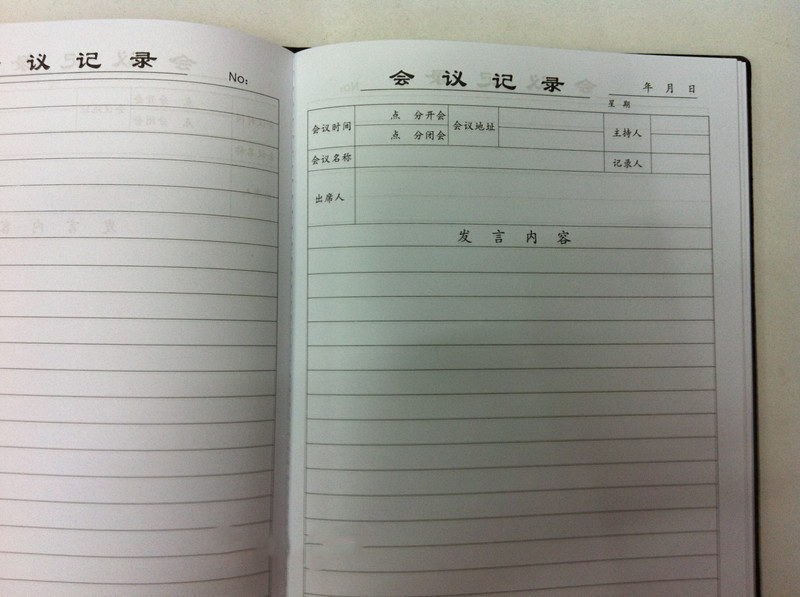 议记录
No:
会议记录
年 月 日
星 期
会议时间
点 分开会
点 分闭会
会议地址
主持人
会议名称
记录人
出席人
发 言 内 容